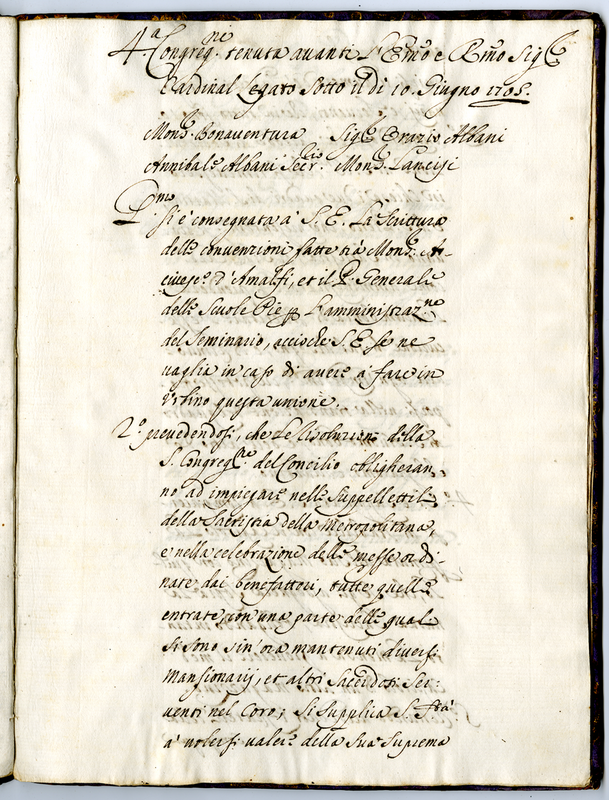 4.ª Congreg.ne tenuta avanti l'Emo e Rmo Sigr
Cardinal Legato sotto il dì 10. Giugno 1705.
Monsr. Bonaventura Sigr Orazio Albani
Annibale Albani Secrio. Monsr. Lancisi
Pmo
si è consegnata à S. E. la scrittura
delle convenzioni fatte trà Monsr. Ar-
civesco. d'Amalfi, et il P. Generale
delle Scuole Pie per l'amministrazne
del Seminario, acciochè S. E. se ne
vaglia in caso di avere à fare in
Urbino questa unione.
2.º prevedendosi, che le risoluzioni della
S. Congregne del Concilio obligheran-
no ad impiegare nelle suppellettili
della sacristia della metropolitana,
e nella celebrazione delle messe ordi-
nate dai benefattori, tutte quelle
entrate, con una parte delle quali
si sono sin'ora mantenuti diversi
mansionarij, et altri sacerdoti ser-
venti nel Coro; si supplica S. Stà
à volersi valere della sua suprema